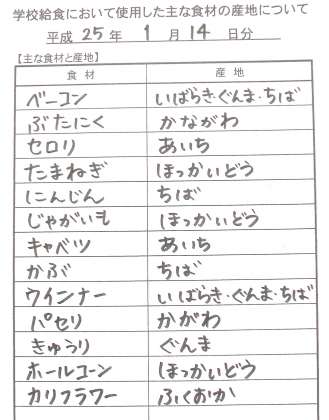 学校給食において使用した主な食材の産地について
平成 25 年 1 月 14 日分
【主な食材と産地】
食材 産地
ベーコン いばらき・ぐんま・ちば
ぶたにく かながわ
セロリ あいち
たまねぎ ほっかいどう
にんじん ちば
じゃがいも ほっかいどう
キャベツ あいち
かぶ ちば
ウインナー いばらき・ぐんま・ちば
パセリ かがわ
きゅうり ぐんま
ホールコーン ほっかいどう
カリフラワー ふくおか